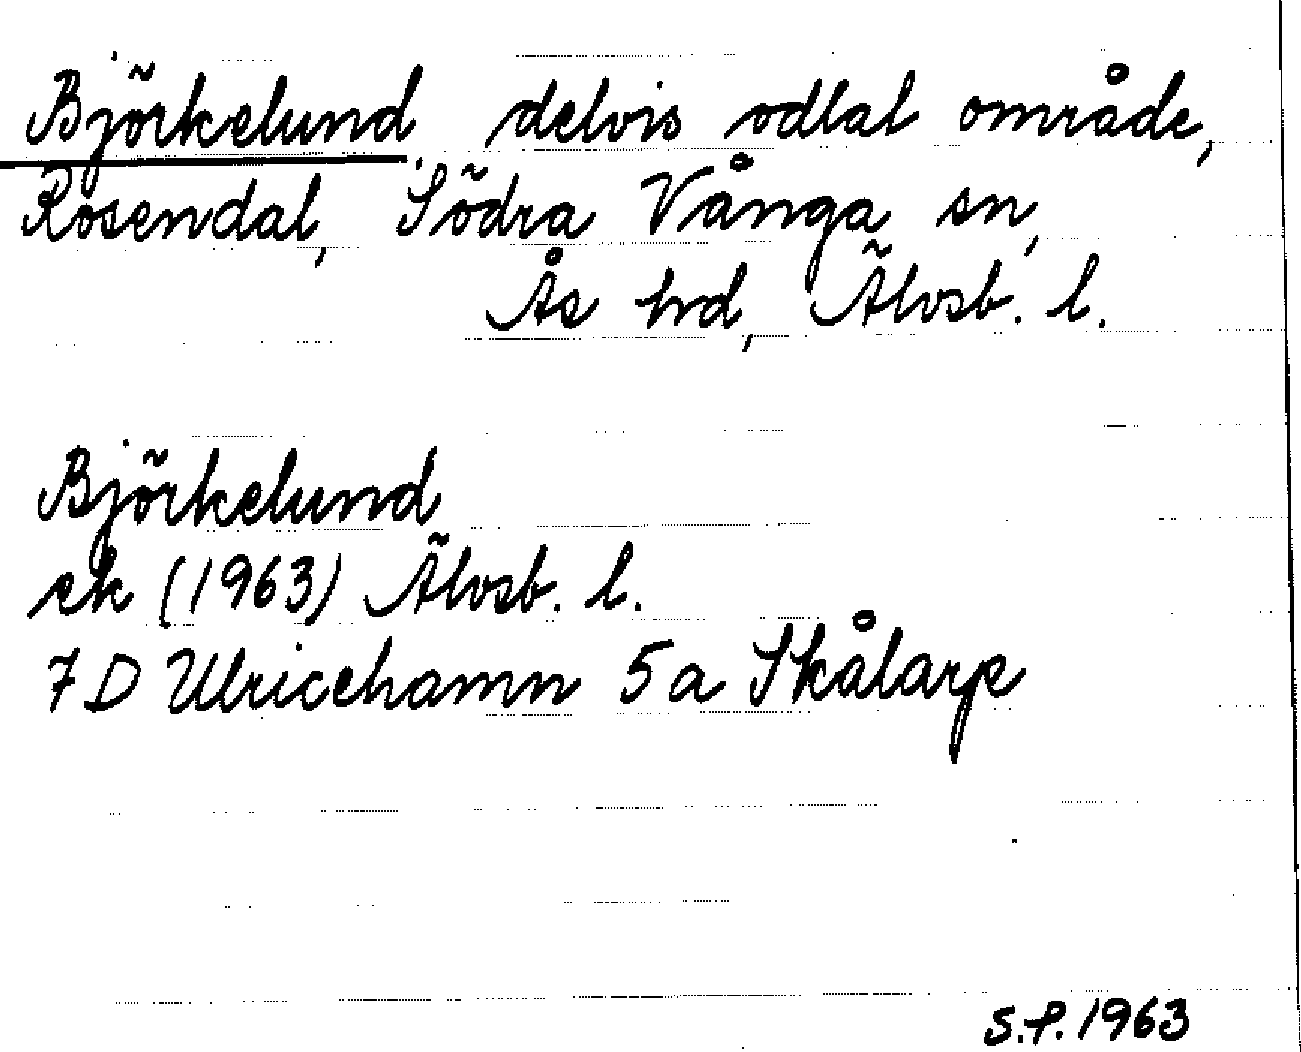 Björkelund, delvis odlat område,
Rosendal, Södra Vånga sn,
Ås hrd, Älvsb. l.
Björkelund
ek (1963) Älvsb. l.
7D Ulricehamn 5a Skålarp
S.P. 1963